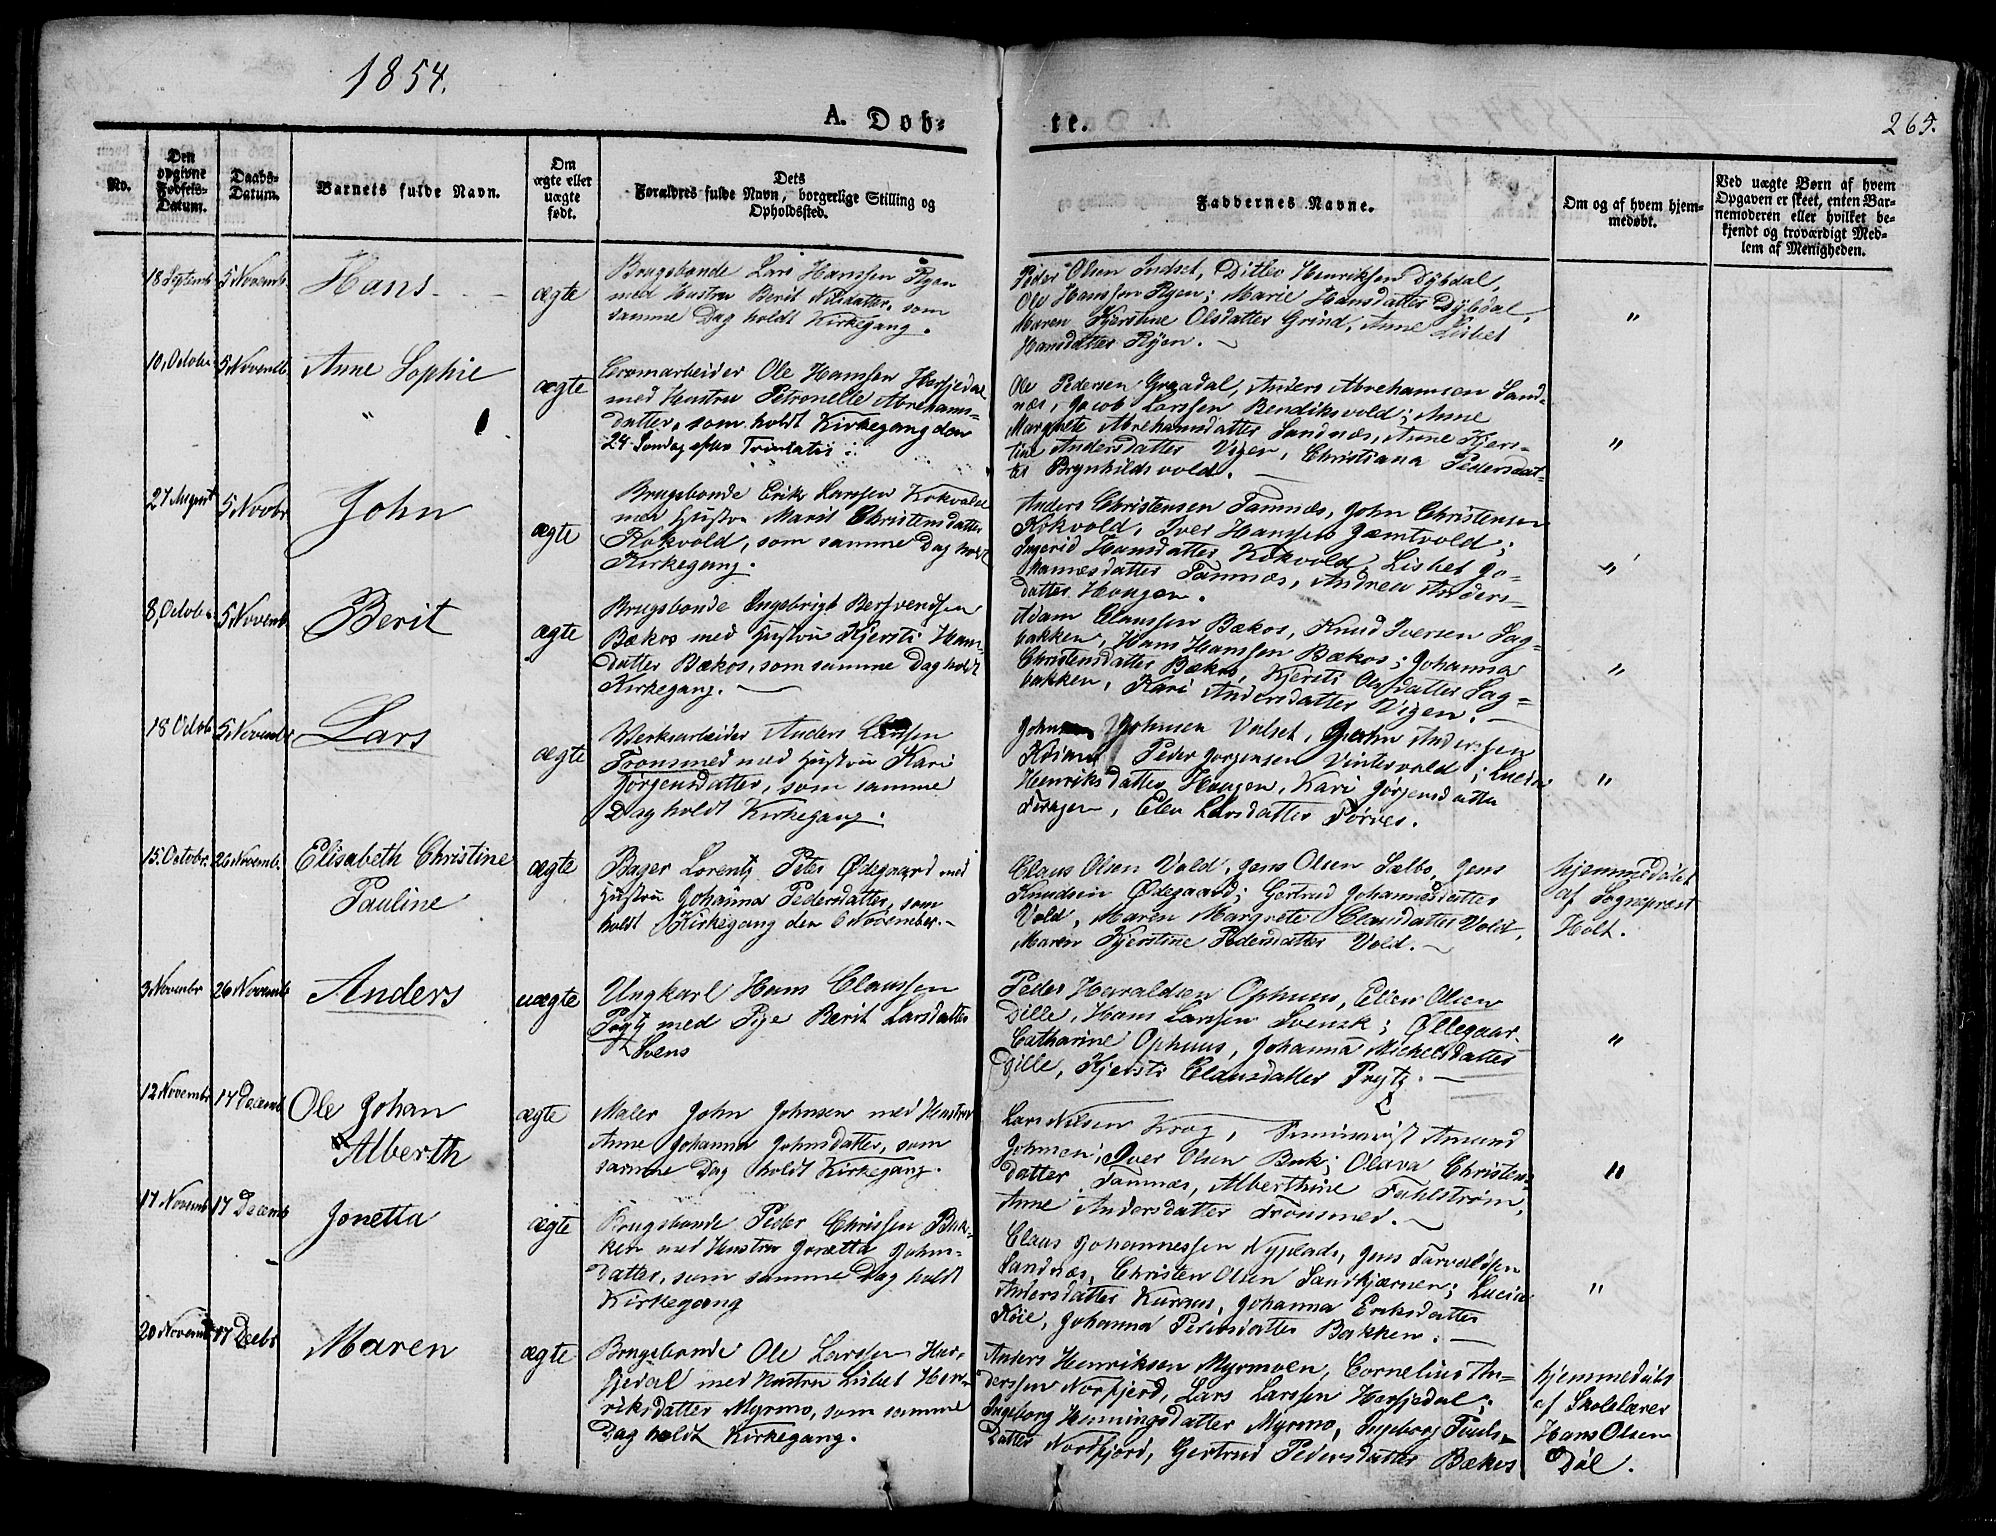 1854.
A. Døb-
te.
265.
No.
Den opgivne Fødsels-Datum.
Daabs-Datum.
Barnets fulde Navn.
Om ægte eller uægte født.
Dets Forældres fulde Navn, borgerlige Stilling og Opholdssted.
Faddernes Navne.
Om og af hvem hjemmedøbt.
Ved uægte Børn af hvem Opgaven er skeet, enten Barnemoderen eller hvilket bekjendt og troværdigt Medlem af Menigheden.
18 Septemb 5 Novemb. Hans ægte
Brugsbonde Lars Hanssen Ryen
med Hustru Berit Nilsdatter, som
samme Dag holdt Kirkegang.
Peder Olsen Indset, Ditlev Henriksen Dybdal,
Ole Hanssen Ryen; Marie Hansdatter Dybdal,
Maren Kjerstine Olsdatter Grind, Anne Lisbet
Hansdatter Ryen.
"
10, Octobr 5 Novemb Anne Sophie ægte
Ole Hanssen Herjedal
med Hustru Petronelle Abrehams-
datter, som holdt Kirkegang den
24 Søndag efter Trinitatis.
Ole Pedersen, Anders Abrehamsen Sand-
næs, Jacob Larssen Bendiksvold; Anne
Margrete Abrehamsdatter Sandnæs, Anne Kjers-
tine Andersdatter, Christiana Pedersdat-
ter Brynhildsvold.
"
27 August 5 Novbr John ægte
Brugsbonde Erik Larssen Kokvold
med Hustru Marit Christensdatter
Kokvold, som samme Dag holdt
Kirkegang.
Anders Christensen Tamnæs, John Christensen
Kokvold, Iver Hanssen Jæmtvold;
Ingerid Hansdatter Kokvold, Lisbet Jo-
hannesdatter Tamnæs, Andrea Anders-
datter Haugen.
"
8, Octobr 5 Novemb. Berit ægte
Brugsbonde Ingebrigt Bersvendsen
Bækos med Hustru Kjersti Hans-
datter Bækos, som samme Dag holdt
Kirkegang.
Adam Clausen Bækos, Knud Iversen Sag-
bakken, Hans Hanssen Bækos; Johanna
Christensdatter Bækos, Kjersti Olsdatter Sag-
bakken, Kari Andersdatter.
"
18 Octobr 5 Novembr Lars ægte
Werksarbeider Anders Larssen
Tronsmed med Hustru Kari
Jørgensdatter, som samme
Dag holdt Kirkegang.
Johnsen Valset, Andersen
Peder Jørgensen Vintervold; Lucia
Henriksdatter Haugen, Kari Jørgensdatter
Feragen, Elen Larsdatter.
"
15. Octobr. 26 Novemb. Elisabeth Christine ægte
Pauline
Bager Lorentz Peter Ødegaard med
Hustru Johanna Pedersdatter, som
holdt Kirkegang den 6 November.
Claus Olsen Vold, Jens Olsen Sælbo, Jens
Knudsen Ødegaard; Gertrud Johannesdatter
Vold, Maren Margrete Clausdatter Vold,
Maren Kjerstine Pedersdatter Vold.
Hjemmedøbt
af Sognepræst
Holt.
3 Novembr 26 Novemb Anders uægte
Ungkarl Hans Claussen
Prytz med Pige Berit Larsdatter
Svens
Peder Haraldsen Ophuus, Ellen Olsen
Dille, Hans Larssen Svensk; Ollegaar
Catharine Ophuus, Johanna Michelsdatter
Dille, Kjersti Clausdatter Prytz.
"
12 Novembr 17 Decemb Ole Johan ægte
Alberth
Maler John Johnsen med Hustru
Anne Johanna Johnsdatter, som
samme Dag holdt Kirkegang.
Lars Nilsen Krog, Seminarist Amund
Johnsen, Iver Olsen Buk; Olava Christens-
datter Tamnæs, Alberthine Fahlstrøm,
Anne Andersdatter Tronsmed.
"
17 Novemb 17 Decemb Jonetta ægte
Brugsbonde Peder Chrissen Bak-
ken med Hustru Jonetta Johns-
datter, som samme Dag holdt
Kirkegang
Claus Johannessen Nyplads, Jens
Sandnæs, Christen Olsen Sandkjærnen; Lucia
Andersdatter Kuraas, Johanna Eriksdatter
Køie, Johanna Pedersdatter Bakken.
"
20 Novemb 17 Decbr Maren ægte
Brugsbonde Ole Larssen Her-
jedal med Hustru Lisbet Hen-
riksdatter Myrmo, som samme
Dag holdt Kirkegang.
Anders Henriksen Myrmoen, Cornelius An-
derssen Norfjerd, Lars Larssen Herjedal;
Ingeborg Henningsdatter Myrmo, Ingeborg Pauls-
datter Nordfjord, Gertrud Pedersdatter Bækos
Hjemmedøbt
af Skolelærer
Hans Olsen
Døl.